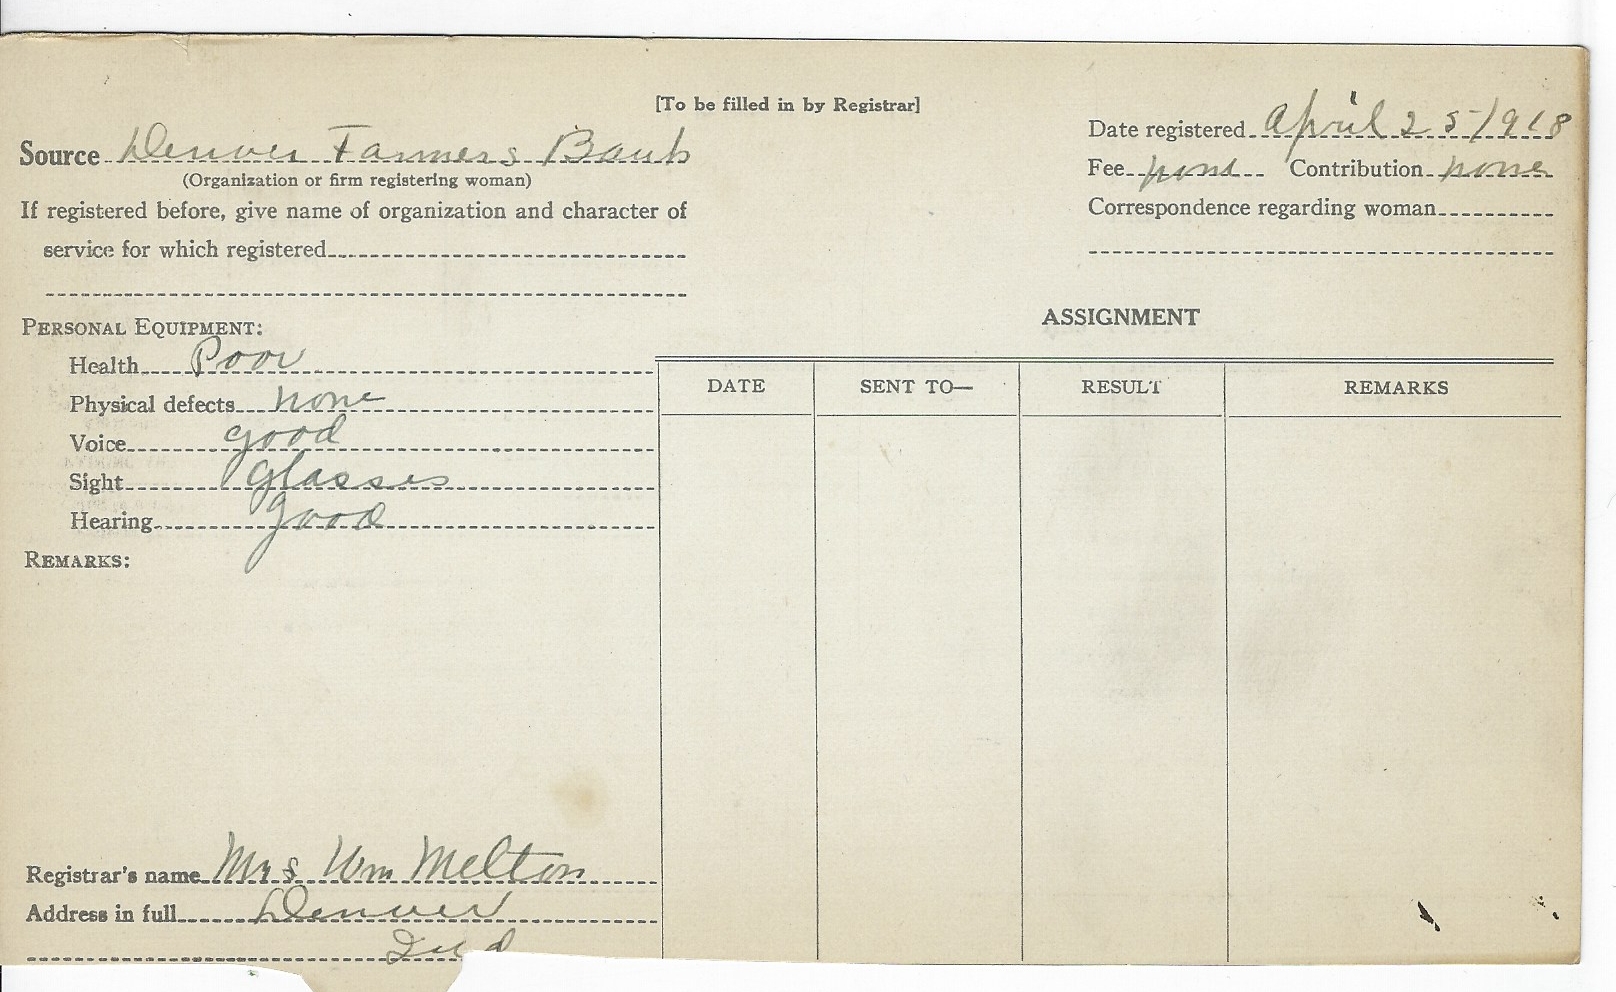 [To be filled in by Registrar]
Source Denver Farmers Bank
(Organization or firm registering woman)
If registered before, give name of organization and character of
service for which registered
Date registered April 25-1918
Fee none Contribution none
Correspondence regarding woman
PERSONAL EQUIPMENT:
Health Poor
Physical defects none
Voice good
Sight glasses
Hearing good
REMARKS:
Registrar's name Mrs Wm Melton
Address in full Denver
Ind
ASSIGNMENT
DATE SENT TO— RESULT REMARKS